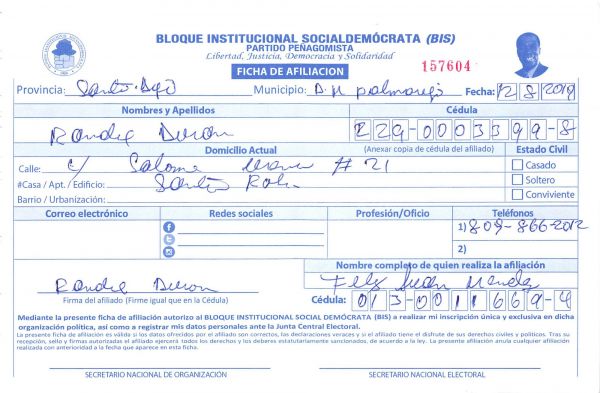 BLOQUE INSTITUCIONAL SOCIALDEMÓCRATA (BIS)
PARTIDO PEÑAGOMISTA
Libertad, Justicia, Democracia y Solidaridad
FICHA DE AFILIACION
157604
Provincia: Santo Dgo Municipio: D.N palmarejo Fecha: 12 8 2019
Nombres y Apellidos Cédula
Randie Duran 229-0003399-8
Domicilio Actual (Anexar copia de cédula del afiliado) Estado Civil
Calle: c/ Salome # 21 Casado
#Casa / Apt. / Edificio: Santo Soltero
Barrio / Urbanización: Conviviente
Correo electrónico Redes sociales Profesión/Oficio Teléfonos
1) 809-866-2012
2)
Nombre completo de quien realiza la afiliación
Randie Duran Feliz Juan Mendez
Firma del afiliado (Firme igual que en la Cédula) Cédula: 013-0011669-4
Mediante la presente ficha de afiliación autorizo al BLOQUE INSTITUCIONAL SOCIAL DEMÓCRATA (BIS) a realizar mi inscripción única y exclusiva en dicha
organización política, así como a registrar mis datos personales ante la Junta Central Electoral.
La presente ficha de afiliación es válida si los datos ofrecidos por el afiliado son correctos, las declaraciones veraces y si el afiliado tiene el disfrute de sus derechos civiles y políticos. Tras su
recepción, sello y firmas autorizadas el afiliado ejercerá todos los derechos y los deberes estatutariamente sancionados, de acuerdo a la ley. La presente afiliación anula cualquier afiliación
realizada con anterioridad a la fecha que aparece en esta ficha.
SECRETARIO NACIONAL DE ORGANIZACIÓN SECRETARIO NACIONAL ELECTORAL